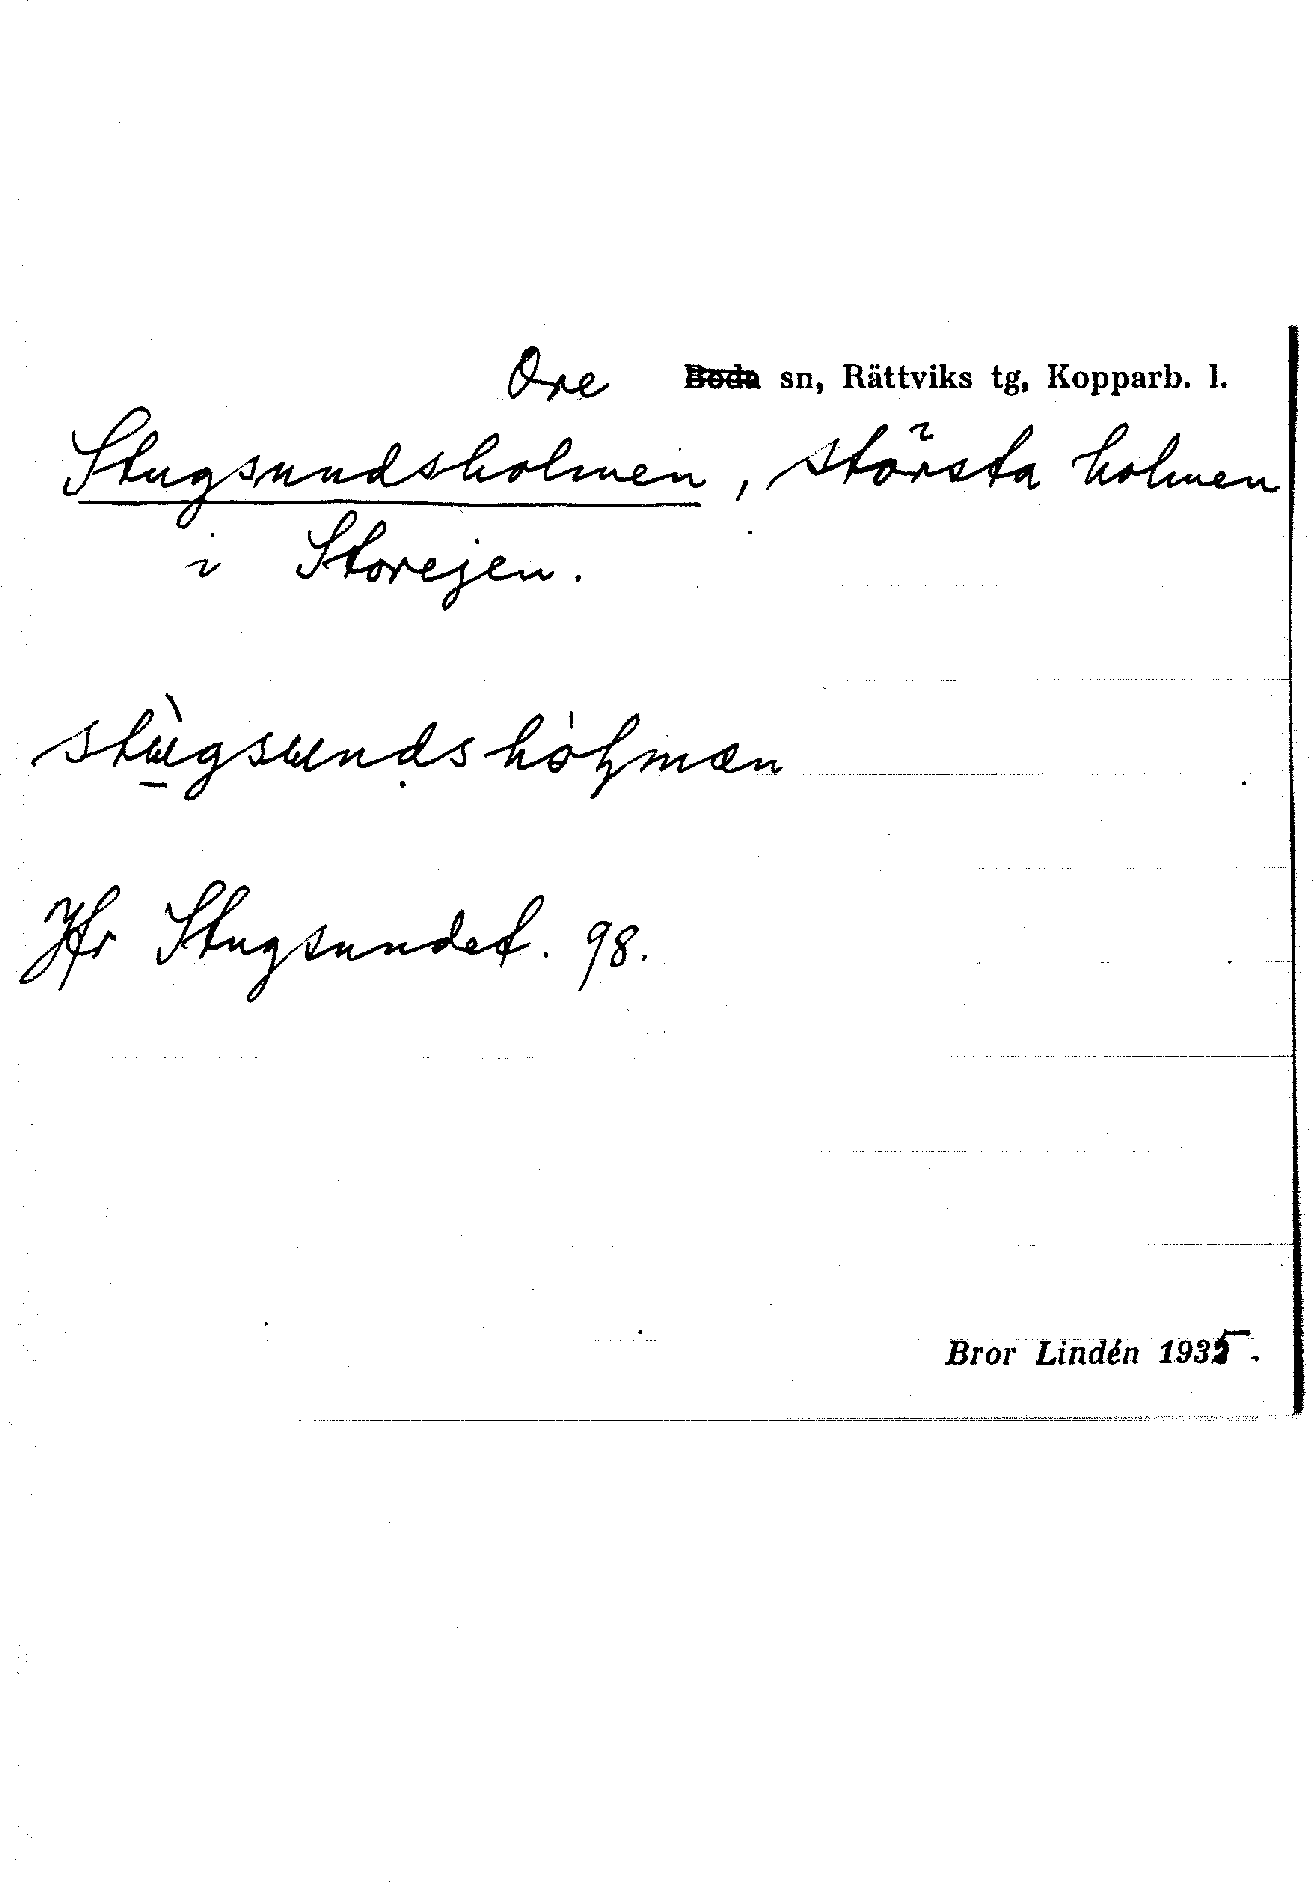 Ore ~~Boda~~ sn, Rättviks tg, Kopparb. l.
Stugsundsholmen, största holmen
i Storejen.
Jfr Stugsundet. 98.
Bror Lindén 1935.